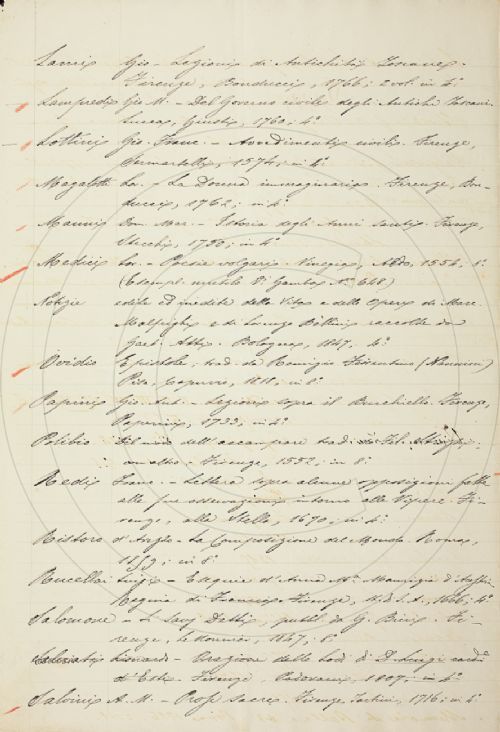 Lami Gio - Lezioni di Antichità Toscane.
Firenze, Bonducci, 1766; 2 vol. in 4°
Lampredi Gio M. - Del Governo civile degli Antichi Toscani
Lucca, Giusti, 1760; 4°
Lottini Gio. Franc. - Avvedimenti civili. Firenze,
Sermartelli, 1574; in 4°
Magalotti Lor. - La Donna immaginaria. Firenze, Bon-
ducci, 1762; in 4°
Manni Dom. Mar. - Istoria degli Anni santi. Firenze,
Stecchi, 1750; in 4°
Medici Lor. - Poesie volgari. Vinegia, Aldo, 1554, 8°
(Esempl. mutilo V. Gamba N° 648)
Notizie edite ed inedite della Vita e delle Opere di Marc.
Malpighi e di Lorenzo Bellini raccolte da
Gaet. Atti. Bologna, 1847, 4°
Ovidio Epistole, trad. da Remigio Fiorentino (Nannini)
Pisa, Capurro, 1818, in 8°
Papini Gio. Ant. - Lezioni sopra il Burchiello. Firenze,
Paperini, 1733; in 4°
Polibio Del modo dell'accampare trad. da Fil. Strozzi
con altro - Firenze, 1552; in 8°
Redi Franc. - Lettera sopra alcune opposizioni fatte
alle sue osservazioni intorno alle Vipere. Fi-
renze, alla Stella, 1670; in 4°
Ristoro d'Arezzo - La Composizione del Mondo. Roma,
1859; in 8°
Rucellai Luigi - Esequie d'Anna M.ª Maurizia d'Austria
Regina di Francia. Firenze, 1666; 4°
Salomone - Li Savj Detti, pubbl. da G. Bini. Fi-
renze, 1847; 8°
Salviati Lionardo - Orazione delle Lodi di D. Luigi card.
d'Este. Firenze, Padovani, 1587; in 4°
Salvini A. M. - Prose sacre. Firenze, Tartini, 1716; in 4°